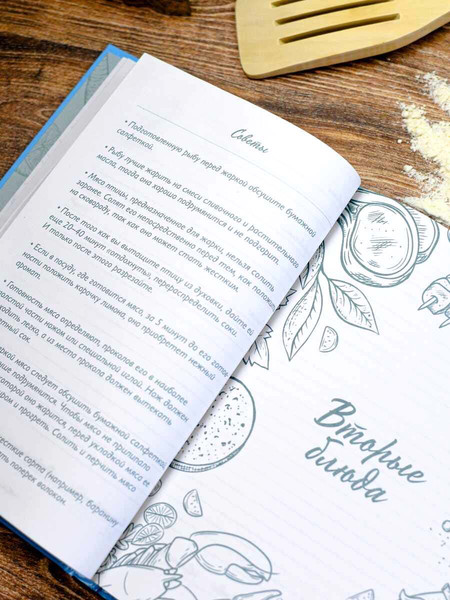 Советы
• Подготовленную рыбу перед жаркой обсушите бумажной
салфеткой.
• Рыбу лучше жарить на смеси сливочного и растительного
масла, тогда она хорошо подрумянится и не подгорит.
• Мясо птицы, предназначенное для жарки, нельзя солить
заранее. Солят его непосредственно перед тем, как положить
на сковороду, так как оно может стать жестким.
• После того как вы вытащите птицу из духовки, дайте ей
еще 20-40 минут «отдохнуть», перераспределить соки.
И только после этого разрезайте.
• Если в посуду, где готовится мясо, за 5 минут до его готов-
ности положить корочку лимона, оно приобретет нежный
аромат.
• Готовность мяса определяют, проколов его в наиболее
толстой части ножом или специальной иглой. Нож должен
входить легко, а из места прокола должен вытекать
сок.
мясо следует обсушить бумажной салфеткой,
подрумянится. Чтобы мясо не прилипало
которой оно жарится, перед укладкой мяса ее
и прогреть. Солить и перчить мясо
сорта (например, баранину
поперек волокон.
Вторые
блюда